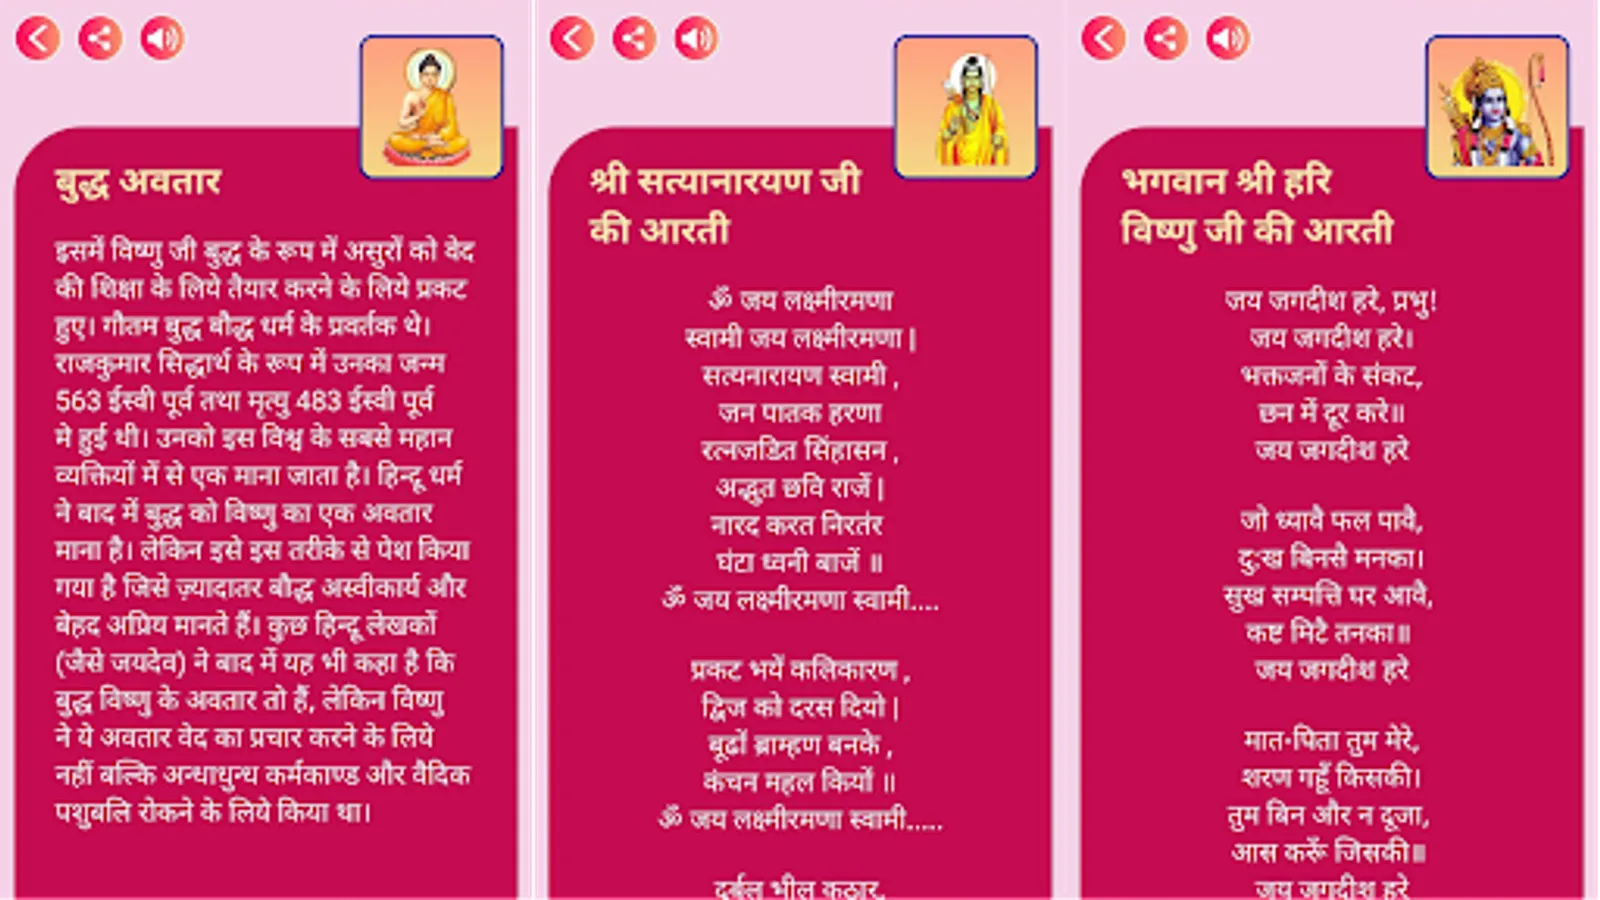 बुद्ध अवतार
इसमें विष्णु जी बुद्ध के रूप में असुरों को वेद
की शिक्षा के लिये तैयार करने के लिये प्रकट
हुए। गौतम बुद्ध बौद्ध धर्म के प्रवर्तक थे।
राजकुमार सिद्धार्थ के रूप में उनका जन्म
563 ईस्वी पूर्व तथा मृत्यु 483 ईस्वी पूर्व
मे हुई थी। उनको इस विश्व के सबसे महान
व्यक्तियों में से एक माना जाता है। हिन्दू धर्म
ने बाद में बुद्ध को विष्णु का एक अवतार
माना है। लेकिन इसे इस तरीके से पेश किया
गया है जिसे ज़्यादातर बौद्ध अस्वीकार्य और
बेहद अप्रिय मानते हैं। कुछ हिन्दू लेखकों
(जैसे जयदेव) ने बाद में यह भी कहा है कि
बुद्ध विष्णु के अवतार तो हैं, लेकिन विष्णु
ने ये अवतार वेद का प्रचार करने के लिये
नहीं बल्कि अन्धाधुन्ध कर्मकाण्ड और वैदिक
पशुबलि रोकने के लिये किया था।
श्री सत्यानारयण जी
की आरती
ॐ जय लक्ष्मीरमणा
स्वामी जय लक्ष्मीरमणा |
सत्यनारायण स्वामी ,
जन पातक हरणा
रत्नजडित सिंहासन ,
अद्भुत छवि राजें |
नारद करत निरतंर
घंटा ध्वनी बाजें ॥
ॐ जय लक्ष्मीरमणा स्वामी....
प्रकट भयें कलिकारण ,
द्विज को दरस दियो |
बूढों ब्राम्हण बनके ,
कंचन महल कियों ॥
ॐ जय लक्ष्मीरमणा स्वामी.....
दुर्बल भील कठार,
भगवान श्री हरि
विष्णु जी की आरती
जय जगदीश हरे, प्रभु!
जय जगदीश हरे।
भक्तजनों के संकट,
छन में दूर करे॥
जय जगदीश हरे
जो ध्यावै फल पावै,
दुःख बिनसै मनका।
सुख सम्पत्ति घर आवै,
कष्ट मिटै तनका॥
जय जगदीश हरे
मात-पिता तुम मेरे,
शरण गहूँ किसकी।
तुम बिन और न दूजा,
आस करूँ जिसकी॥
जय जगदीश हरे